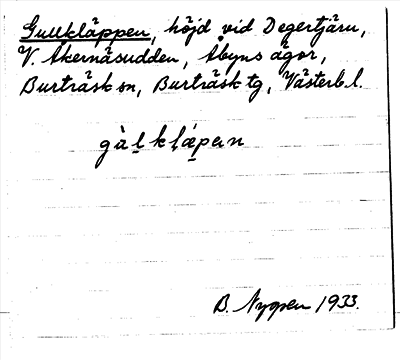 Gullkläppen, höjd vid Degertjärn,
V. Åkernäsudden, Åbyns ägor,
Burträsk sn, Burträsk tg, Västerb. l.
B. Nygren 1933.